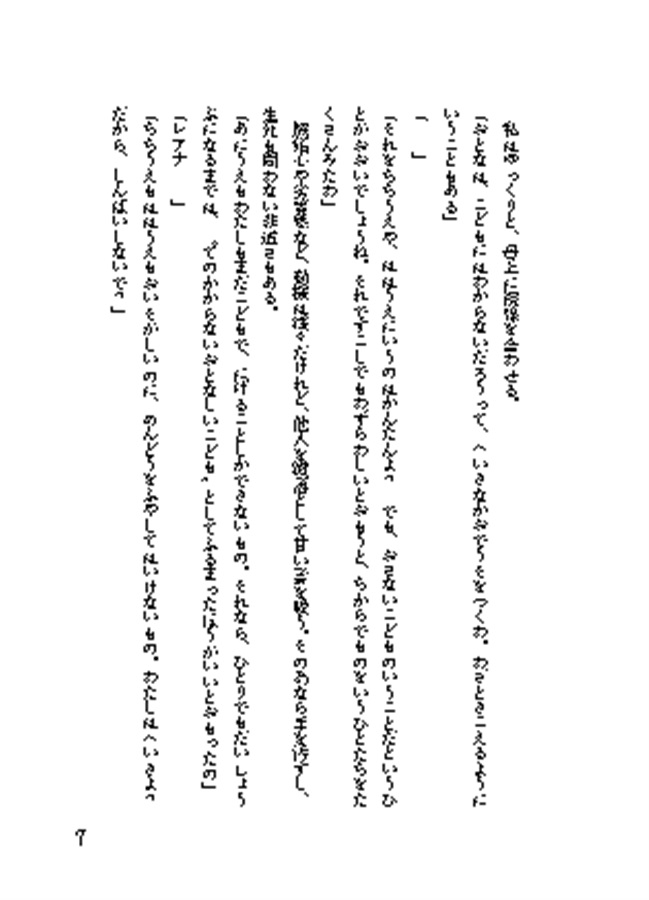 私はゆっくりと、母上に視線を合わせる。
「おとなは、こどもにはわからないだろうって、へいきなかおでうそをつくわ。わざときこえるように
いうこともある」
「　」
「それをちちうえや、ははうえにいうのはかんたんよ　でも、おさないこどものいうことだというひ
とがおおいでしょうね。それですこしでもわずらわしいとおもうと、ちからでものをいうひとたちをた
くさんみたわ」
など、動機は様々だけれど、他人を として甘い を吸う。そのためなら手を汚すし、
生死も問わない非道さもある。
「あにうえもわたしもまだこどもで、にげることしかできないもの。それなら、ひとりでもだいじょう
ぶになるまでは、　てのかからないおとなしいこども〟としてふるまったほうがいいとおもったの」
「レアナ　」
「ちちうえもははうえもおいそがしいのに、めんどうをふやしてはいけないもの。わたしはへいきよっ
だから、しんぱいしないでっ」
7